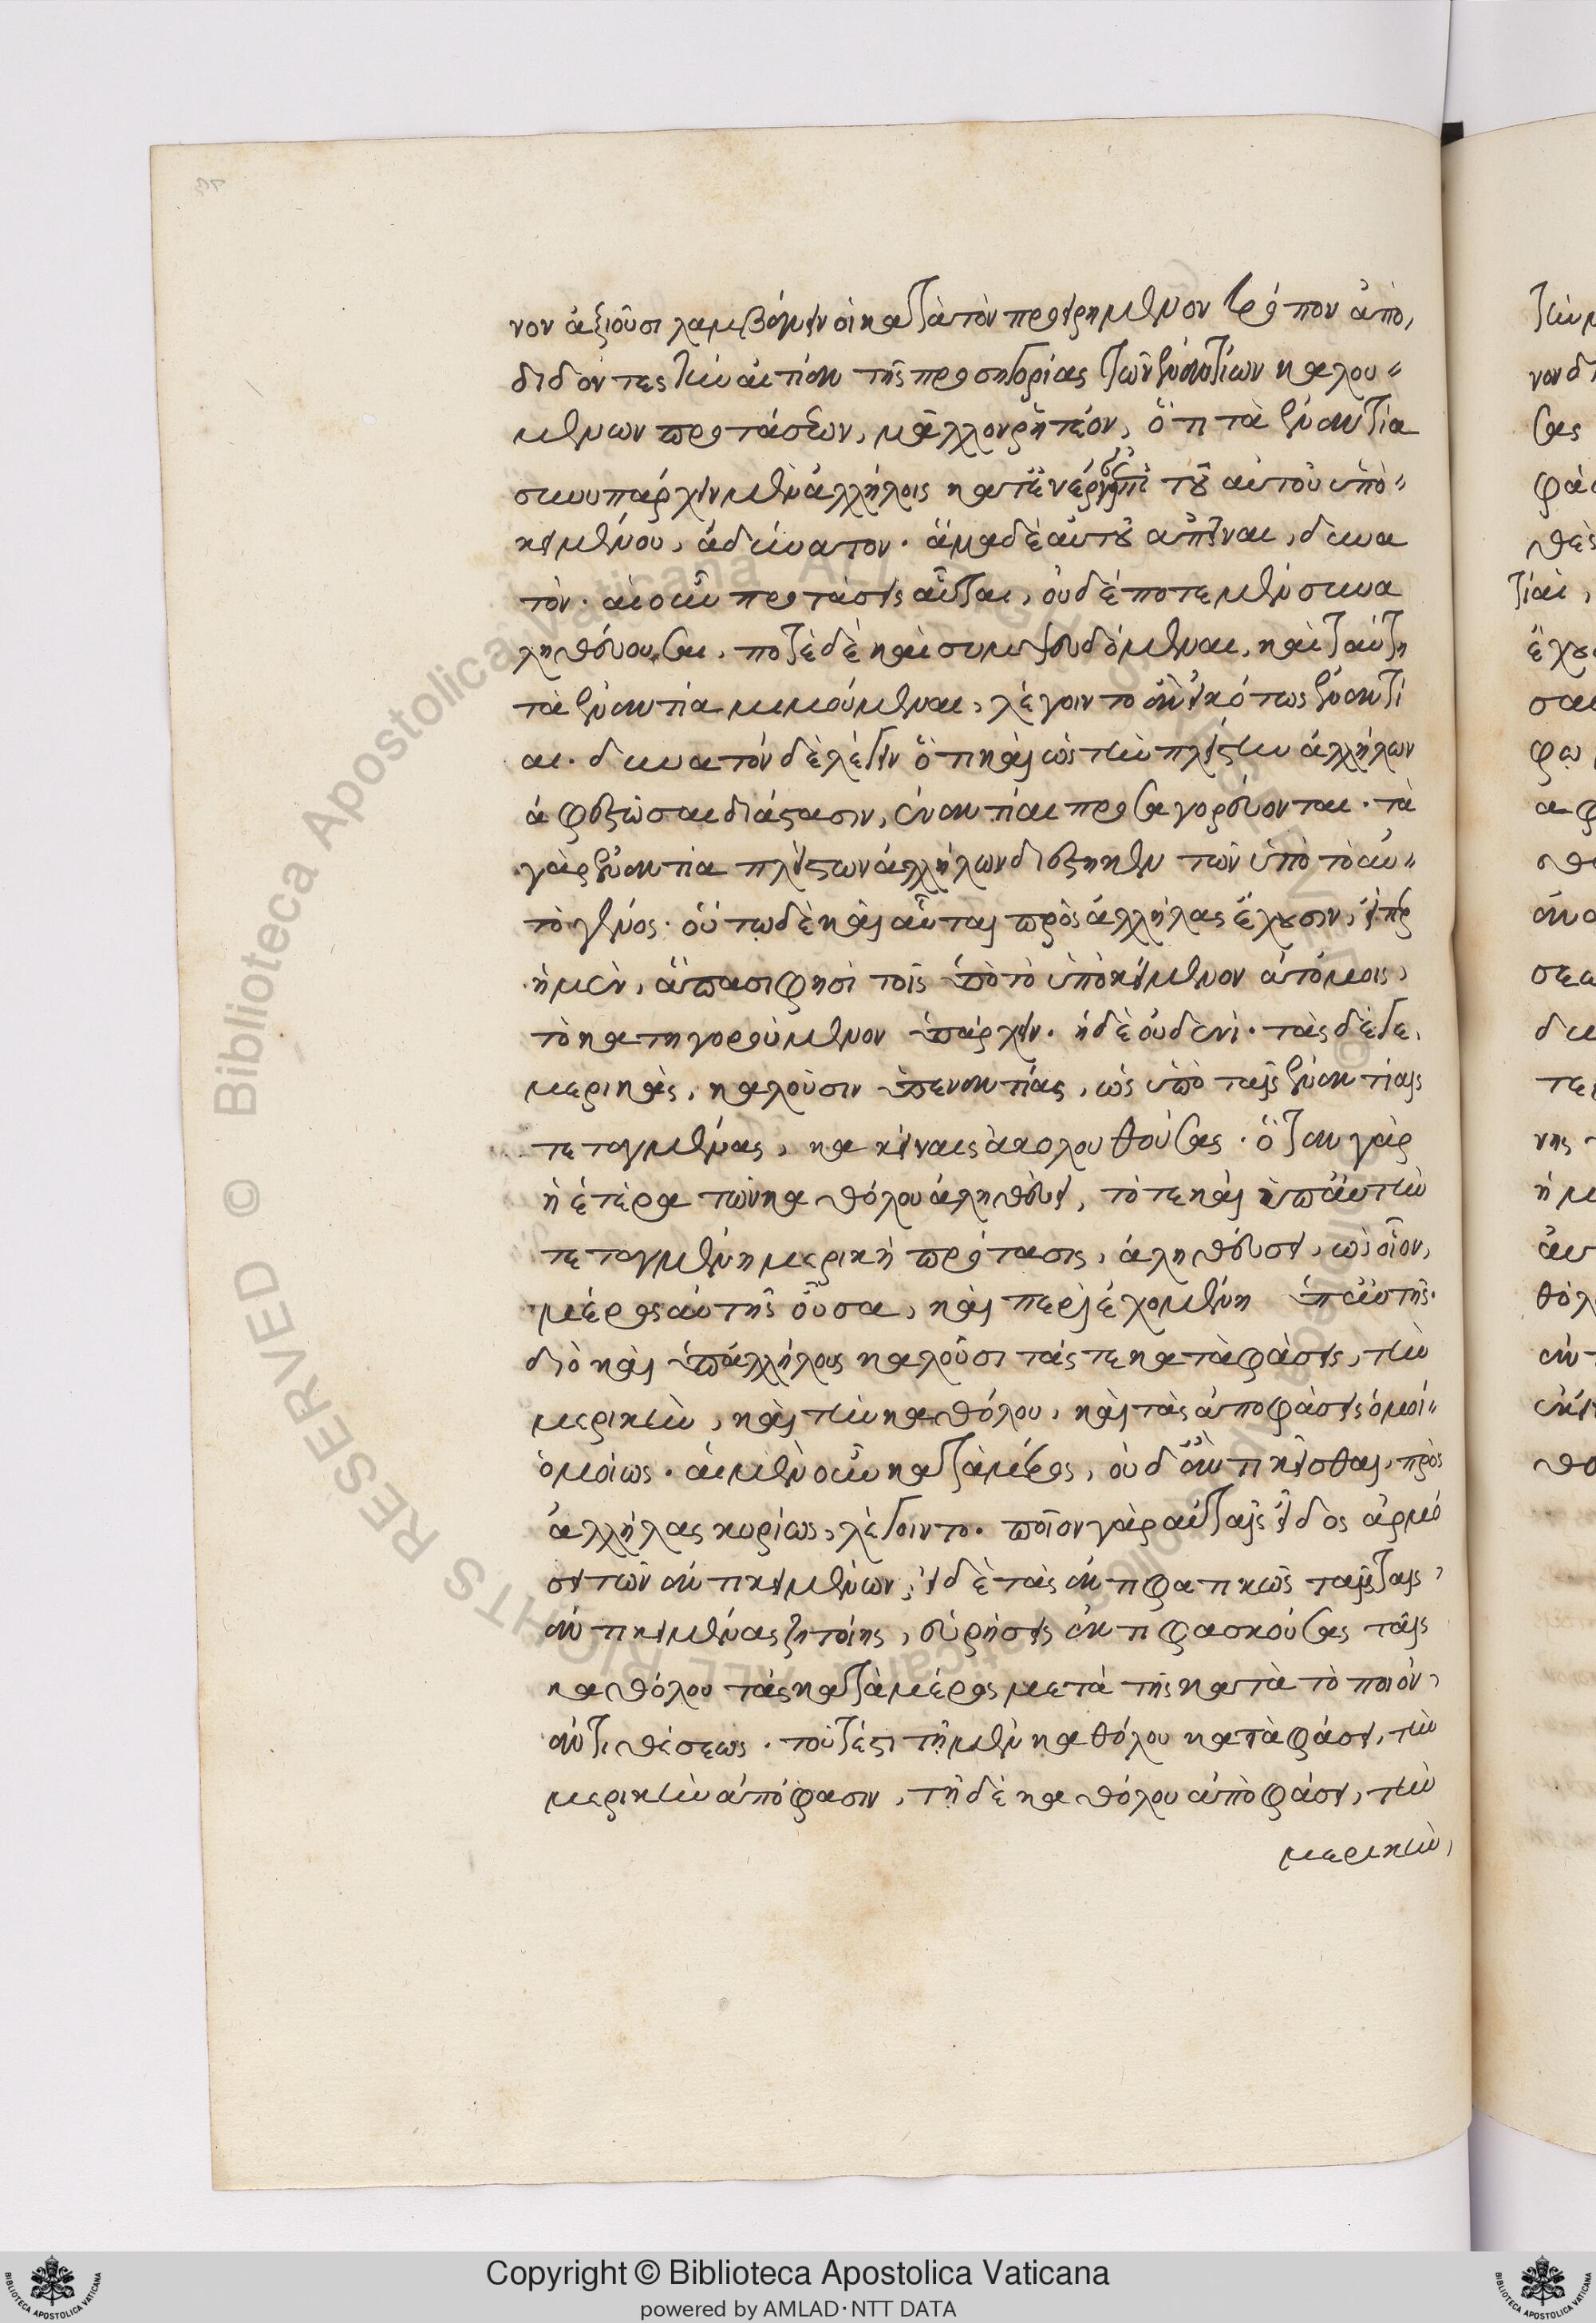 νον ἀξιοῦσι λαμβάνειν οἱ κατὰ τὸν προειρημένον τρόπον ἀπο,
διδόντες τὴν αἰτίαν τῆς προσηγορίας τῶν ἐναντίων καλου"
μένων προτάσεων, μᾶλλον ῥητέον, ὅτι τὰ ἐναντία
συνυπάρχειν μὲν ἀλλήλοις κατ' ἐνέργειαν ἐπὶ τοῦ αὐτοῦ ὑπο"
κειμένου, ἀδύνατον. ἅμα δὲ αὐτοῦ ἀπεῖναι, δυνα
τόν. αἱ οὖν προτάσεις αὗται, οὐδέποτε μὲν συνα
ληθεύουσαι, ποτὲ δὲ καὶ συμψευδόμεναι, καὶ ταύτῃ
τὰ ἐναντία μιμούμεναι, λέγοιντο ἂν εἰκότως ἐναντί
αι. δυνατὸν δὲ λέγειν ὅτι καὶ ὡς τὴν πλείστην ἀλλήλων
ἀφεστῶσαι διάστασιν, ἐναντίαι προσαγορεύονται. τὰ
γὰρ ἐναντία πλεῖστον ἀλλήλων διέστηκεν τῶν ὑπὸ τὸ αὐ"
τὸ γένος. οὕτω δὲ καὶ αὗται πρὸς ἀλλήλας ἔχουσιν, εἴπερ
ἡ μὲν, ἅπασι φησὶ τοῖς ὑπὸ τὸ ὑποκείμενον ἀτόμοις,
τὸ κατηγορούμενον ὑπάρχειν. ἡ δὲ οὐδενί. τὰς δέ γε,
μερικὰς, καλοῦσιν ὑπεναντίας, ὡς ὑπὸ ταῖς ἐναντίαις
τεταγμένας, κἀκείναις ἀκολουθούσας. ὅταν γὰρ
ἡ ἑτέρα τῶν καθόλου ἀληθεύει, τότε καὶ ἡ ὑπ' αὐτὴν
τεταγμένη μερικὴ πρότασις, ἀληθεύσει, ὡς οἷον,
μέρος αὐτῆς οὖσα, καὶ περιεχομένη ὑπ' αὐτῆς.
διὸ καὶ ὑπαλλήλους καλοῦσι τάς τε καταφάσεις, τὴν
μερικὴν, καὶ τὴν καθόλου, καὶ τὰς ἀποφάσεις ὁμοί"
ὁμοίως. αἱ μὲν οὖν κατὰ μέρος, οὐδ' ἂν ἀντικεῖσθαι, πρὸς
ἀλλήλας κυρίως, λέγοιντο. ποῖον γὰρ αὐταῖς εἶδος ἁρμό
σει τῶν ἀντικειμένων; εἰ δὲ τὰς ἀντιφατικῶς ταύταις,
ἀντικειμένας ζητοίης, εὑρήσεις ἀντιφασκούσας ταῖς
καθόλου τὰς κατὰ μέρος μετὰ τῆς κατὰ τὸ ποιόν,
ἀντιθέσεως. τουτέστι τῇ μὲν καθόλου καταφάσει, τὴν
μερικὴν ἀπόφασιν, τῇ δὲ καθόλου ἀποφάσει, τὴν
μερικὴν,
Copyright © Biblioteca Apostolica Vaticana
powered by AMLAD·NTT DATA